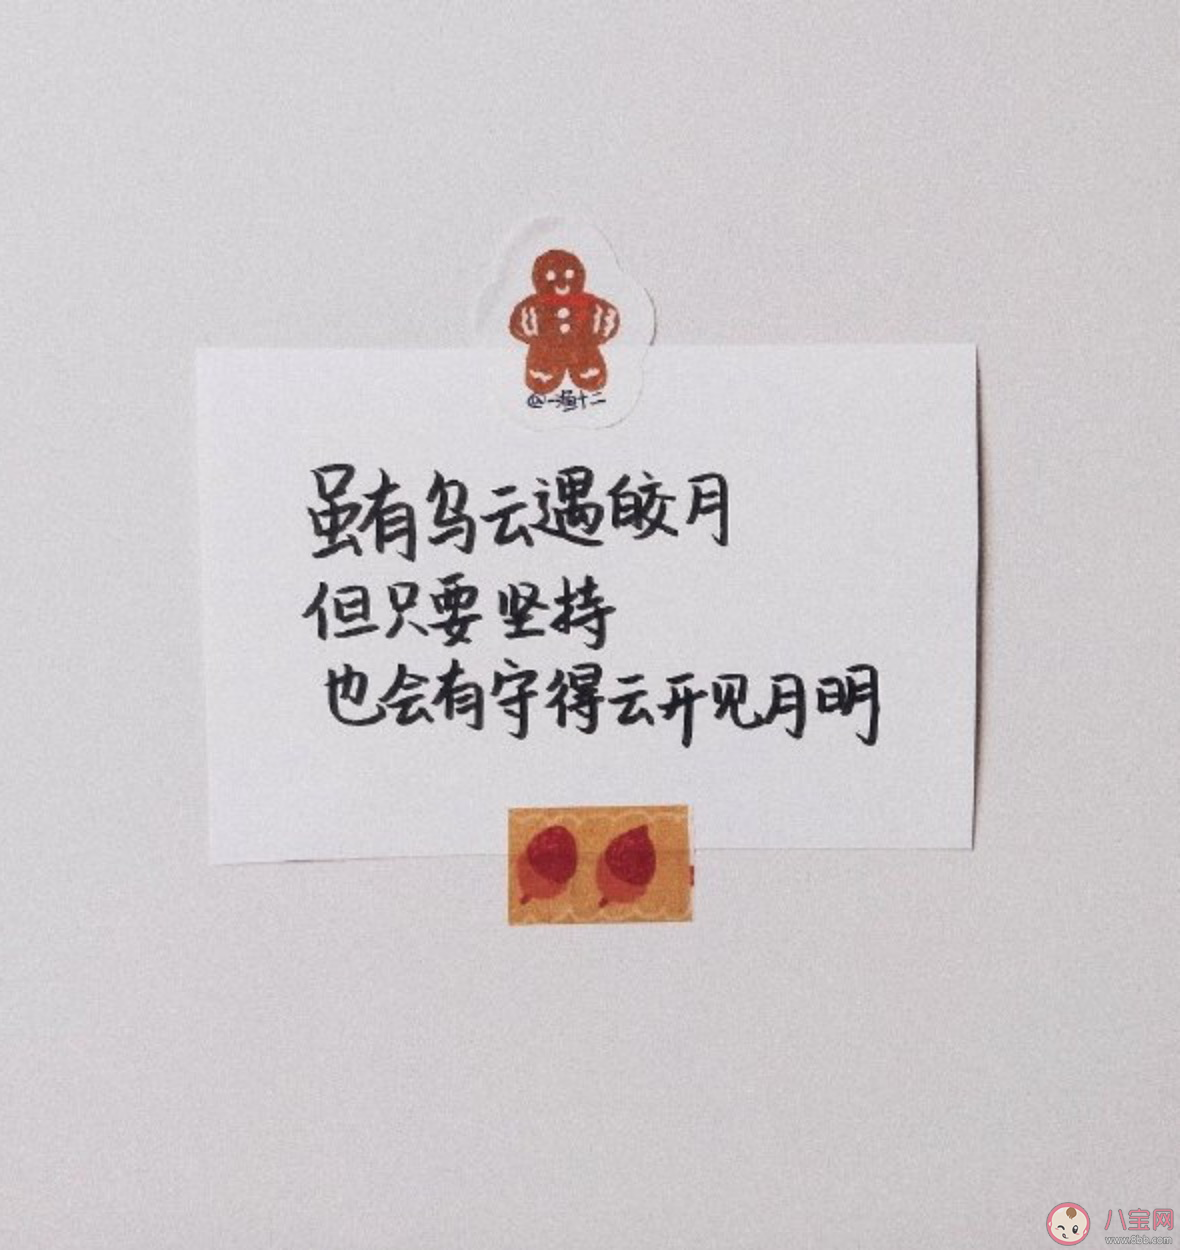 虽有乌云遇皎月
但只要坚持
也会有守得云开见月明
八宝网
www.8bb.com